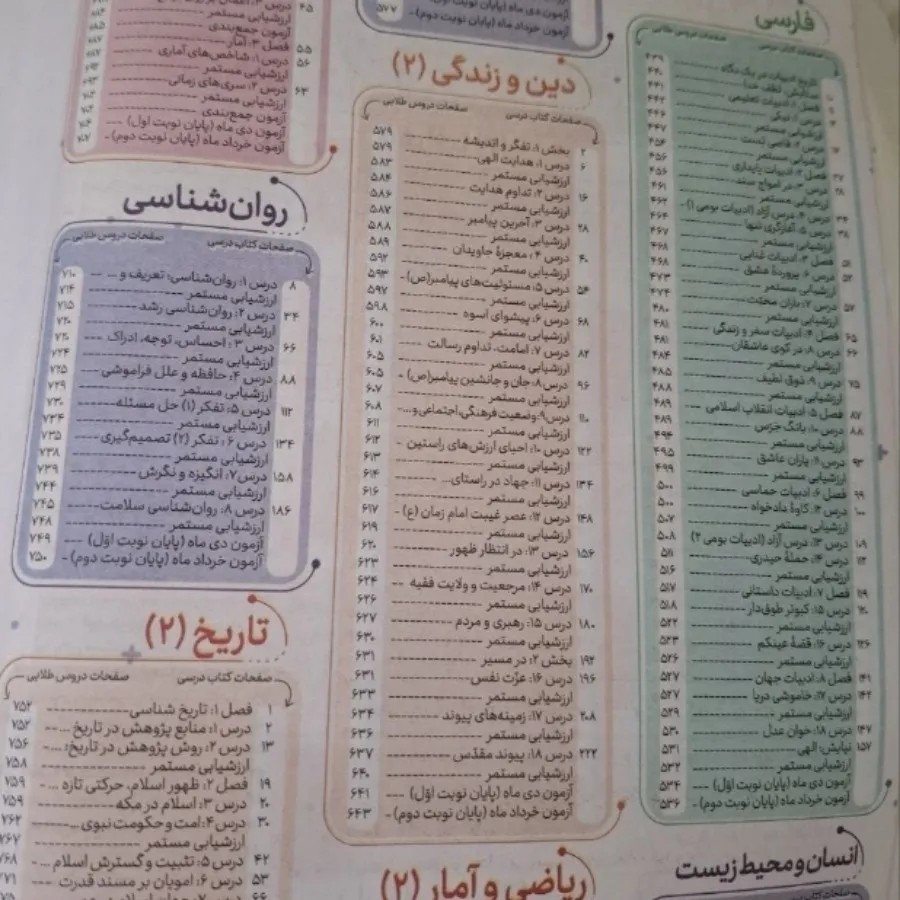 فارسی
صفحات کتاب درسی صفحات دروس طلایی
تاریخ ادبیات در یک نگاه ۴۳۹
ستایش: لطف خدا ۴۴۰
فصل ۱: ادبیات تعلیمی ۴۴۱
درس ۱: نیکی ۴۴۲
ارزشیابی مستمر ۴۴۶
درس ۲: قاضی بست ۴۴۷
ارزشیابی مستمر ۴۵۴
فصل ۲: ادبیات پایداری ۴۵۶
درس ۳: در امواج سند ۴۵۶
ارزشیابی مستمر ۴۶۱
درس ۴: درس آزاد (ادبیات بومی ۱) ۴۶۲
درس ۵: آغازگری تنها ۴۶۴
ارزشیابی مستمر ۴۶۷
۵۱ فصل ۳: ادبیات غنایی ۴۶۸
۵۲ درس ۶: پروردهٔ عشق ۴۶۸
ارزشیابی مستمر ۴۷۳
۵۷ درس ۷: باران محبّت ۴۷۴
ارزشیابی مستمر ۴۸۰
۶۵ فصل ۴: ادبیات سفر و زندگی ۴۸۱
۶۶ درس ۸: در کوی عاشقان ۴۸۱
ارزشیابی مستمر ۴۸۴
۷۵ درس ۹: ذوق لطیف ۴۸۵
ارزشیابی مستمر ۴۸۸
۸۷ فصل ۵: ادبیات انقلاب اسلامی ۴۸۹
۸۸ درس ۱۰: بانگ جَرَس ۴۸۹
ارزشیابی مستمر ۴۹۴
۹۳ درس ۱۱: یاران عاشق ۴۹۵
ارزشیابی مستمر ۴۹۹
۹۹ فصل ۶: ادبیات حماسی ۵۰۰
۱۰۰ درس ۱۲: کاوهٔ دادخواه ۵۰۰
ارزشیابی مستمر ۵۰۷
۱۰۹ درس ۱۳: درس آزاد (ادبیات بومی ۲) ۵۰۸
درس ۱۴: حملهٔ حیدری ۵۱۱
ارزشیابی مستمر ۵۱۶
۱۱۹ فصل ۷: ادبیات داستانی ۵۱۷
۱۲۰ درس ۱۵: کبوتر طوق‌دار ۵۱۸
ارزشیابی مستمر ۵۲۲
۱۲۶ درس ۱۶: قصّهٔ عینکم ۵۲۳
ارزشیابی مستمر ۵۲۶
۱۴۱ فصل ۸: ادبیات جهان ۵۲۷
۱۴۲ درس ۱۷: خاموشی دریا ۵۲۷
ارزشیابی مستمر ۵۲۹
۱۴۷ درس ۱۸: خوان عدل ۵۳۰
۱۵۷ نیایش: الهی ۵۳۱
ارزشیابی مستمر ۵۳۲
آزمون دی ماه (پایان نوبت اوّل) ۵۳۴
آزمون خرداد ماه (پایان نوبت دوم) ۵۳۶
انسان و محیط زیست
آزمون دی ماه (پایان نوبت اول)
آزمون خرداد ماه (پایان نوبت دوم) ۵۷۷
دین و زندگی (۲)
صفحات کتاب درسی صفحات دروس طلایی
۲ بخش ۱: تفکّر و اندیشه ۵۷۹
۶ درس ۱: هدایت الهی ۵۷۹
ارزشیابی مستمر ۵۸۳
۱۶ درس ۲: تداوم هدایت ۵۸۴
ارزشیابی مستمر ۵۸۶
۲۸ درس ۳: آخرین پیامبر ۵۸۷
ارزشیابی مستمر ۵۸۸
۴۰ درس ۴: معجزهٔ جاویدان ۵۸۹
ارزشیابی مستمر ۵۹۲
۵۴ درس ۵: مسئولیت‌های پیامبر(ص) ۵۹۳
ارزشیابی مستمر ۵۹۷
۶۸ درس ۶: پیشوای اسوه ۵۹۸
ارزشیابی مستمر ۶۰۰
۸۲ درس ۷: امامت، تداوم رسالت ۶۰۱
ارزشیابی مستمر ۶۰۵
۹۶ درس ۸: جان و جانشین پیامبر(ص) ۶۰۵
ارزشیابی مستمر ۶۰۷
۱۱۰ درس ۹: وضعیت فرهنگی، اجتماعی و... ۶۰۸
ارزشیابی مستمر ۶۱۱
۱۲۲ درس ۱۰: احیای ارزش‌های راستین ۶۱۲
ارزشیابی مستمر ۶۱۳
۱۳۴ درس ۱۱: جهاد در راستای... ۶۱۴
ارزشیابی مستمر ۶۱۶
۱۴۸ درس ۱۲: عصر غیبت امام زمان (ع) ۶۱۷
ارزشیابی مستمر ۶۱۹
۱۵۶ درس ۱۳: در انتظار ظهور ۶۲۰
ارزشیابی مستمر ۶۲۳
۱۷۰ درس ۱۴: مرجعیت و ولایت فقیه ۶۲۴
ارزشیابی مستمر ۶۲۶
۱۸۰ درس ۱۵: رهبری و مردم ۶۲۷
ارزشیابی مستمر ۶۳۰
۱۹۲ بخش ۲: در مسیر ۶۳۱
۱۹۶ درس ۱۶: عزّت نفس ۶۳۱
ارزشیابی مستمر ۶۳۳
۲۰۸ درس ۱۷: زمینه‌های پیوند ۶۳۴
ارزشیابی مستمر ۶۳۶
۲۲۲ درس ۱۸: پیوند مقدّس ۶۳۷
ارزشیابی مستمر ۶۴۰
آزمون دی ماه (پایان نوبت اوّل) ۶۴۱
آزمون خرداد ماه (پایان نوبت دوم) ۶۴۳
ریاضی و آمار (۲)
ارزشیابی مستمر
آزمون جمع‌بندی ۶۸۵
۵۵ فصل ۳: آمار ۶۸۷
۵۶ درس ۱: شاخص‌های آماری ۶۸۷
ارزشیابی مستمر ۶۹۲
۶۳ درس ۲: سری‌های زمانی ۶۹۳
ارزشیابی مستمر
آزمون جمع‌بندی
آزمون دی ماه (پایان نوبت اول)
آزمون خرداد ماه (پایان نوبت دوم) ۷۰۷
روان‌شناسی
صفحات کتاب درسی صفحات دروس طلایی
۸ درس ۱: روان‌شناسی: تعریف و ... ۷۱۰
ارزشیابی مستمر ۷۱۴
۳۴ درس ۲: روان‌شناسی رشد ۷۱۵
ارزشیابی مستمر ۷۲۰
۶۶ درس ۳: احساس، توجه، ادراک ۷۲۰
ارزشیابی مستمر ۷۲۴
۸۸ درس ۴: حافظه و علل فراموشی ۷۲۵
ارزشیابی مستمر ۷۲۹
۱۱۲ درس ۵: تفکر (۱) حل مسئله ۷۳۰
ارزشیابی مستمر ۷۳۴
۱۳۴ درس ۶: تفکر (۲) تصمیم‌گیری ۷۳۵
ارزشیابی مستمر ۷۳۸
۱۵۸ درس ۷: انگیزه و نگرش ۷۳۹
ارزشیابی مستمر ۷۴۴
۱۸۶ درس ۸: روان‌شناسی سلامت ۷۴۵
ارزشیابی مستمر ۷۴۸
آزمون دی ماه (پایان نوبت اوّل) ۷۴۹
آزمون خرداد ماه (پایان نوبت دوم) ۷۵۰
تاریخ (۲)
صفحات کتاب درسی صفحات دروس طلایی
۱ فصل ۱: تاریخ شناسی ۷۵۲
۲ درس ۱: منابع پژوهش در تاریخ ... ۷۵۲
۱۳ درس ۲: روش پژوهش در تاریخ؛ ... ۷۵۶
ارزشیابی مستمر ۷۵۸
۱۹ فصل ۲: ظهور اسلام، حرکتی تازه ... ۷۵۹
۲۰ درس ۳: اسلام در مکه ۷۵۹
۳۰ درس ۴: امت و حکومت نبوی ... ۷۶۲
ارزشیابی مستمر ۷۶۷
۴۲ درس ۵: تثبیت و گسترش اسلام ... ۷۶۸
۵۳ درس ۶: امویان بر مسند قدرت